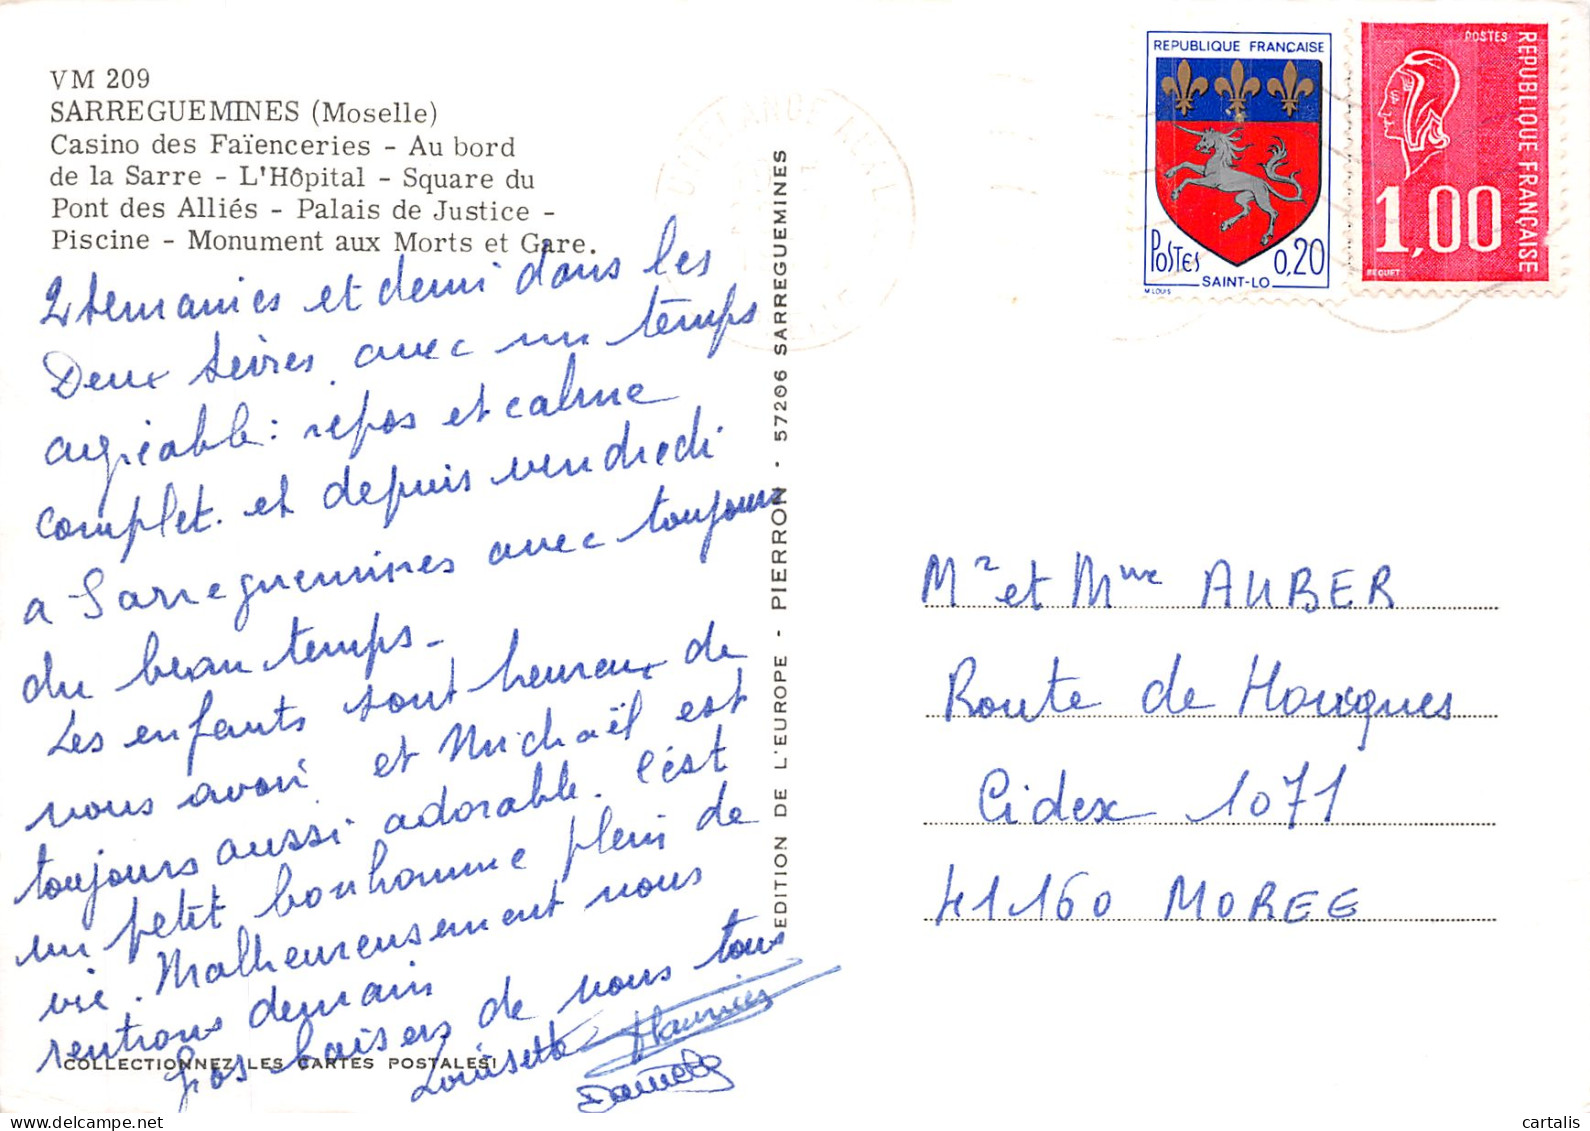 VM 209
SARREGUEMINES (Moselle)
Casino des Faïenceries - Au bord
de la Sarre - L'Hôpital - Square du
Pont des Alliés - Palais de Justice -
Piscine - Monument aux Morts et Gare.
2 semaines et demi dans les
Deux Sèvres avec un temps
agréable : repos et calme
complet. et depuis vendredi
a Sarreguemines avec toujours
du beau temps -
Les enfants sont heureux de
nous avoir et Michaël est
toujours aussi adorable. C'est
un petit bonhomme plein de
vie. Malheureusement nous
rentrons demain
Gros baisers de nous tous
Louisette
COLLECTIONNEZ LES CARTES POSTALES!
EDITION DE L'EUROPE - PIERRON - 57206 SARREGUEMINES
REPUBLIQUE FRANÇAISE
POSTES 0,20
SAINT-LO
M.LOUIS
POSTES
REPUBLIQUE FRANÇAISE
1,00
BEQUET
Mr et Mme AUBER
Route de
Cidex 1071
41160 MOREE
cartalis
www.delcampe.net